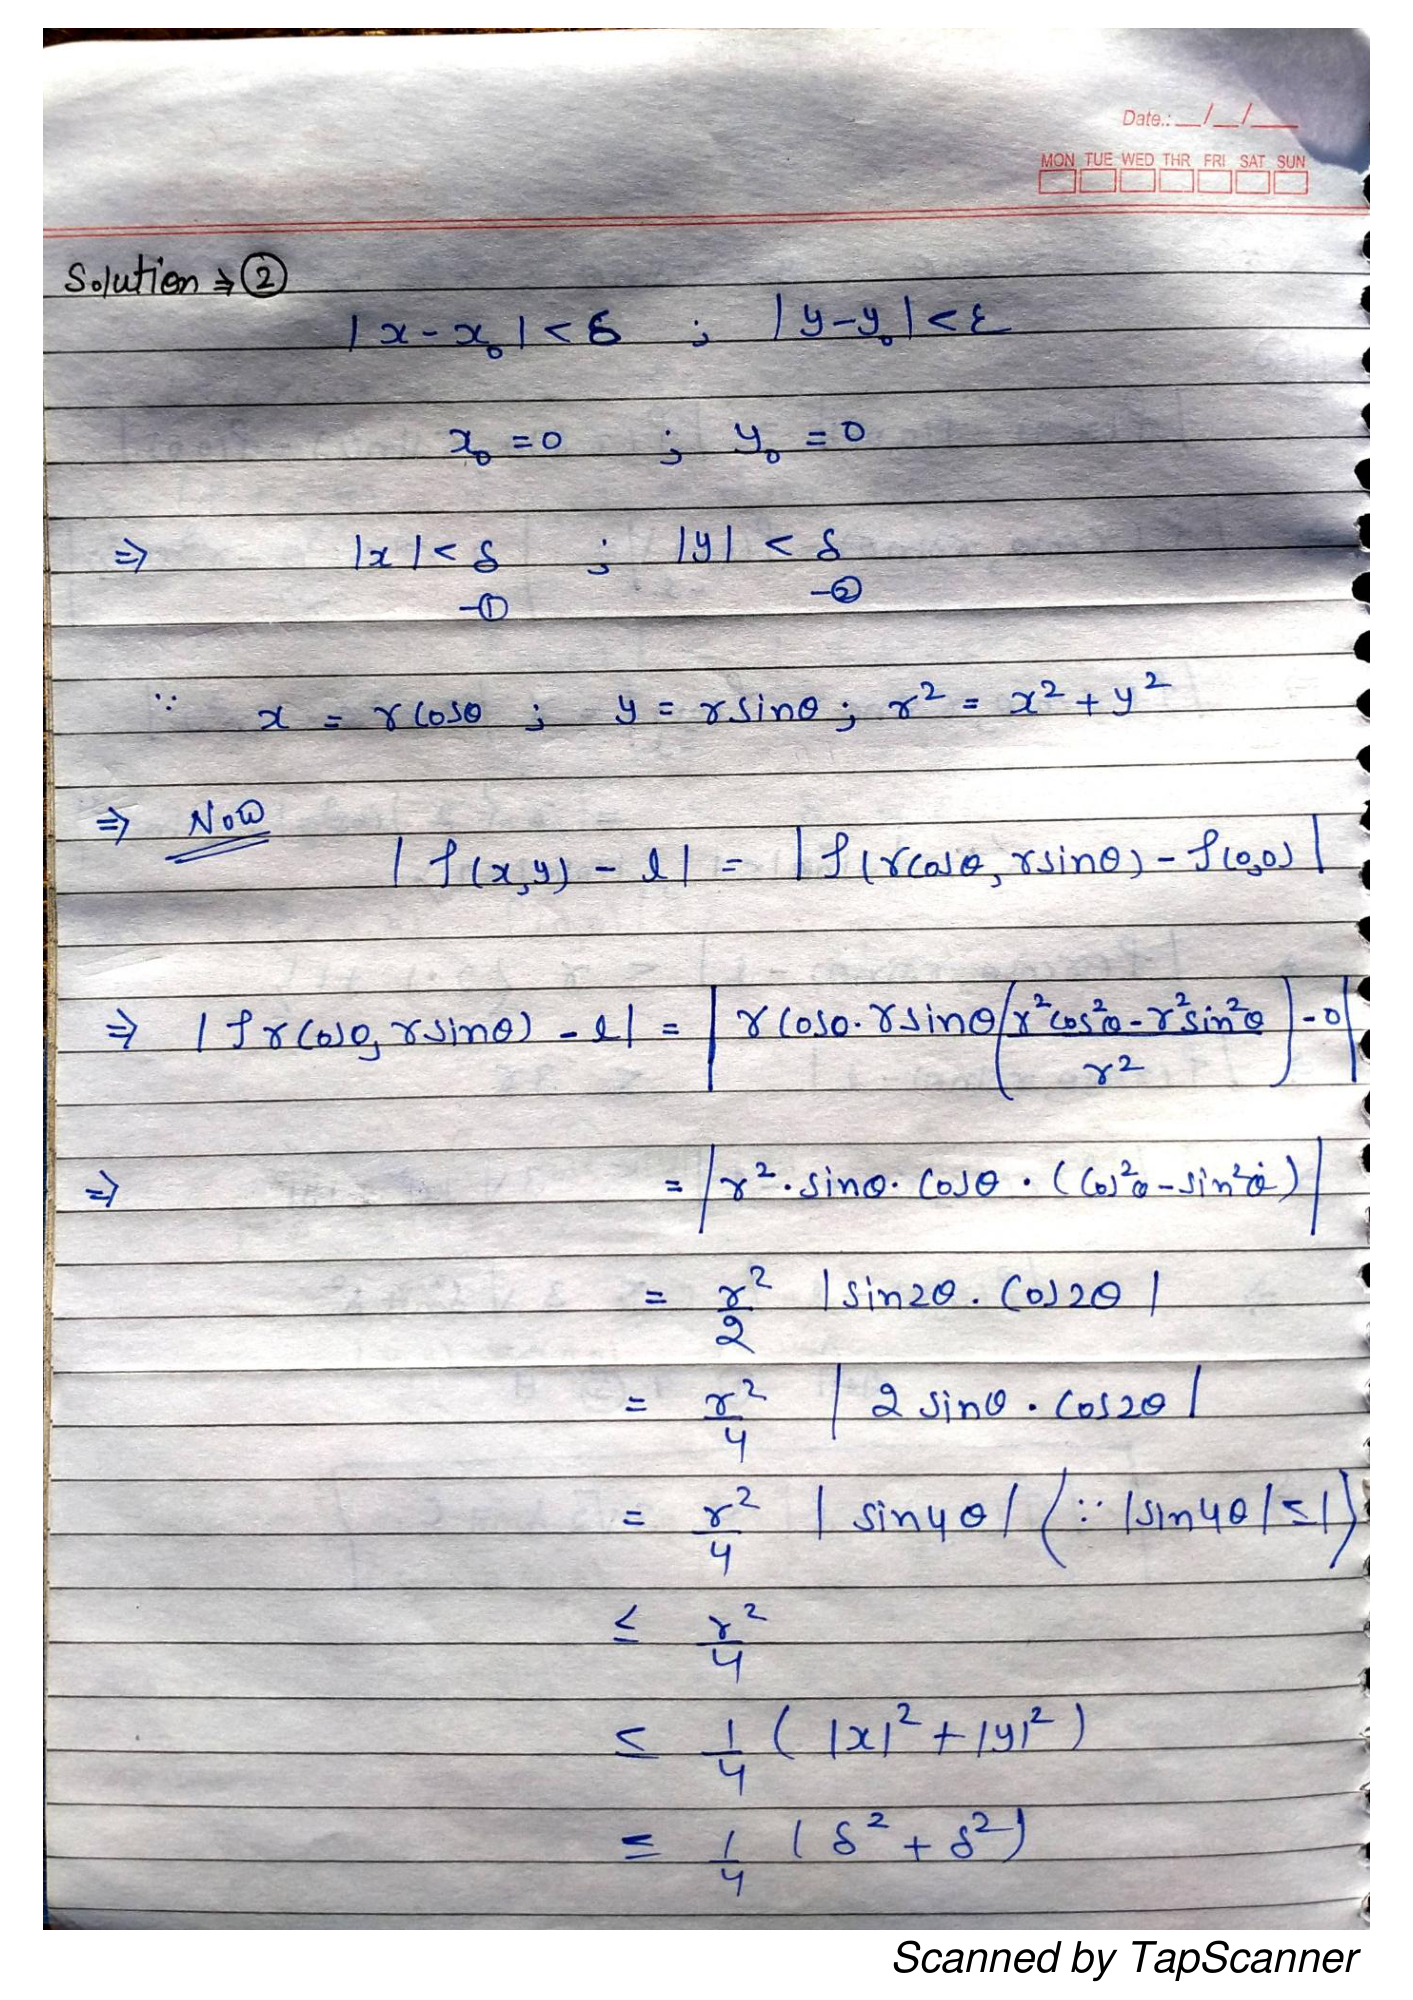 Date.: __/__/___
MON TUE WED THR FRI SAT SUN
Solution ⇒ ②
|x - x₀| < δ ; |y - y₀| < ε
x₀ = 0 ; y₀ = 0
⇒ |x| < δ ; |y| < δ
-① -②
∵ x = r cosθ ; y = r sinθ ; r² = x² + y²
⇒ Now
|f(x,y) - l| = |f(r cosθ, r sinθ) - f(0,0)|
⇒ |f r cosθ, r sinθ) - l| = |r cosθ · r sinθ (r² cos²θ - r² sin²θ / r²) - 0|
⇒ = |r² · sinθ · cosθ · (cos²θ - sin²θ)|
= r²/2 |sin2θ · cos2θ|
= r²/4 |2 sinθ · cos2θ|
= r²/4 |sin4θ| (∵ |sin4θ| ≤ 1)
≤ r²/4
≤ 1/4 (|x|² + |y|²)
≤ 1/4 (δ² + δ²)
Scanned by TapScanner